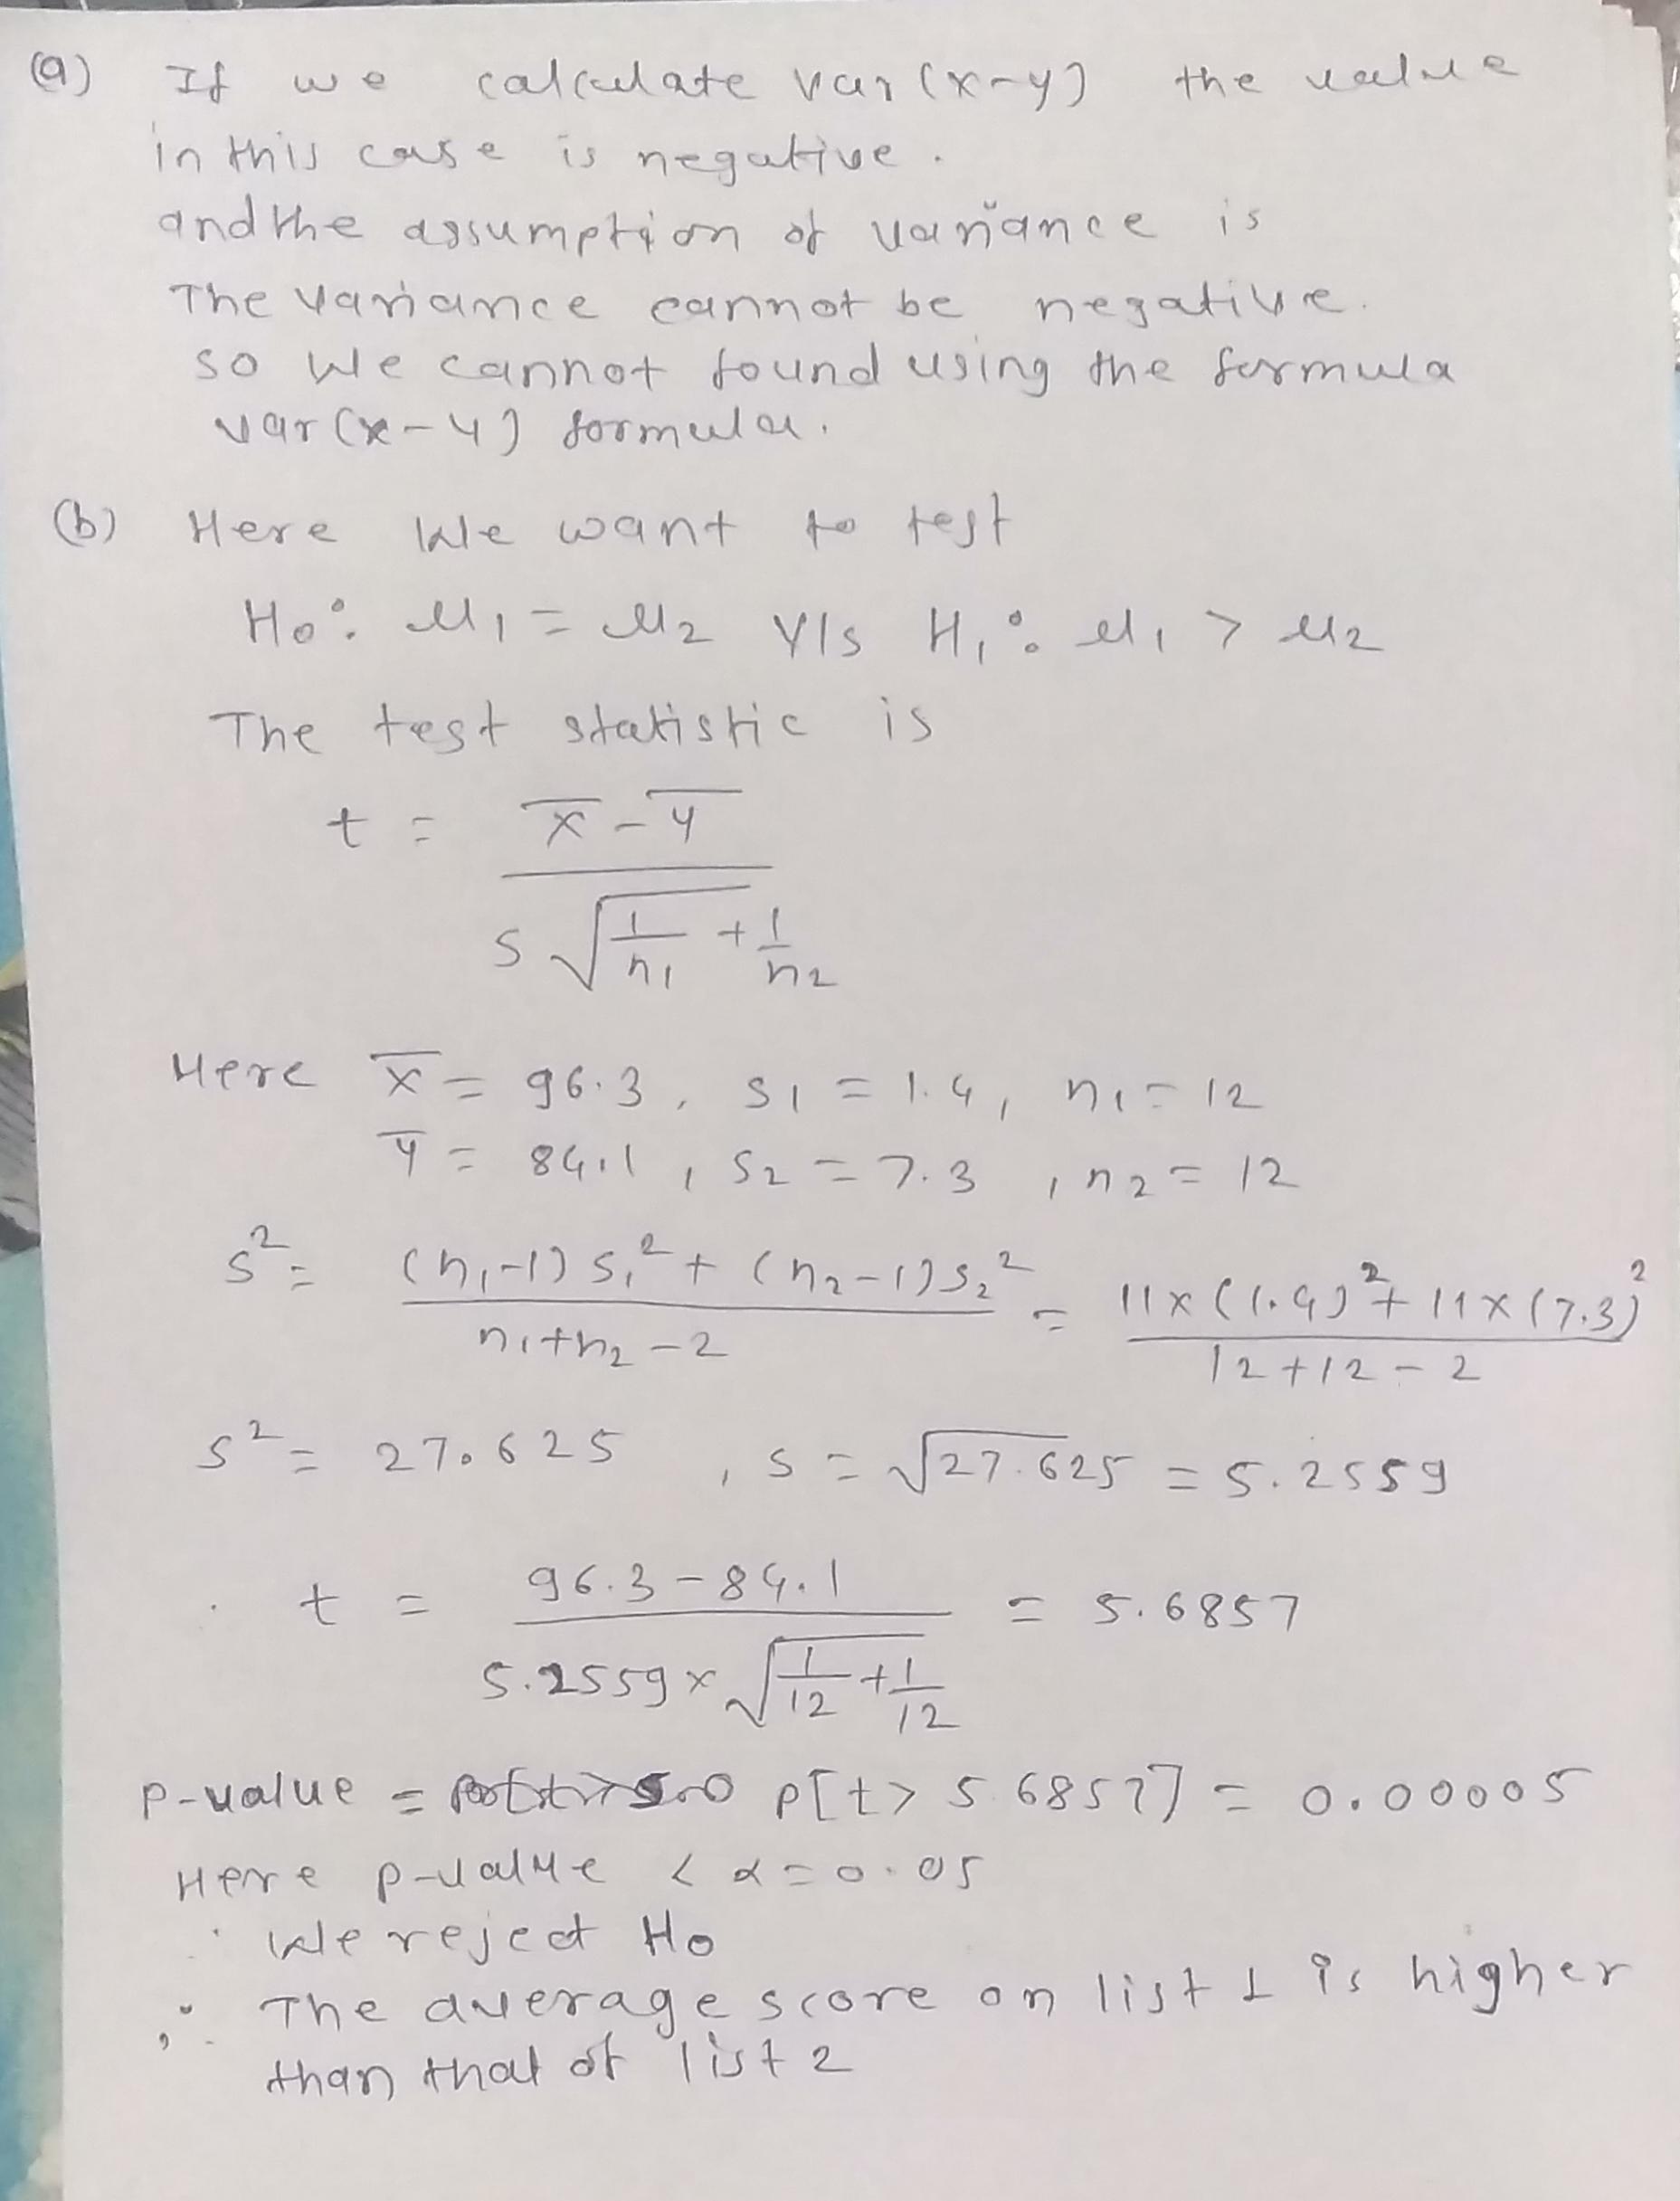 (a) If we calculate var (x-y) the value
in this case is negative.
and the assumption of variance is
The variance cannot be negative.
so we cannot found using the formula
var(x-y) formula.
(b) Here we want to test
H₀: μ₁ = μ₂ V/s H₁: μ₁ > μ₂
The test statistic is
t = (x̄ - ȳ) / (s √(1/n₁ + 1/n₂))
Here x̄ = 96.3, s₁ = 1.4, n₁ = 12
ȳ = 84.1, s₂ = 7.3, n₂ = 12
s² = ((n₁-1)s₁² + (n₂-1)s₂²) / (n₁+n₂-2) = (11×(1.4)² + 11×(7.3)²) / (12+12-2)
s² = 27.625, s = √27.625 = 5.2559
t = (96.3-84.1) / (5.2559×√(1/12 + 1/12)) = 5.6857
p-value = p[t> 5.6857] = 0.00005
Here p-value < α=0.05
∴ We reject H₀
∴ The average score on list 1 is higher
than that of list 2